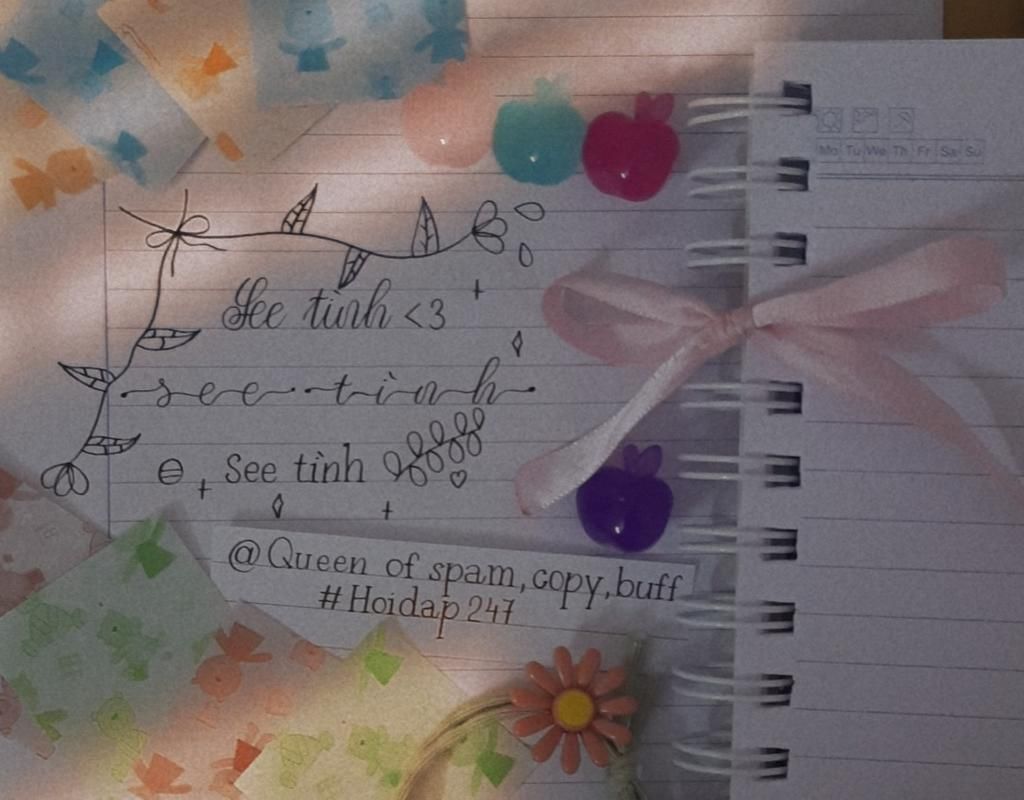 Mo Tu We Th Fr Sa Su
See tình <3
see tình
See tình
@Queen of spam,copy,buff
#Hoidap247